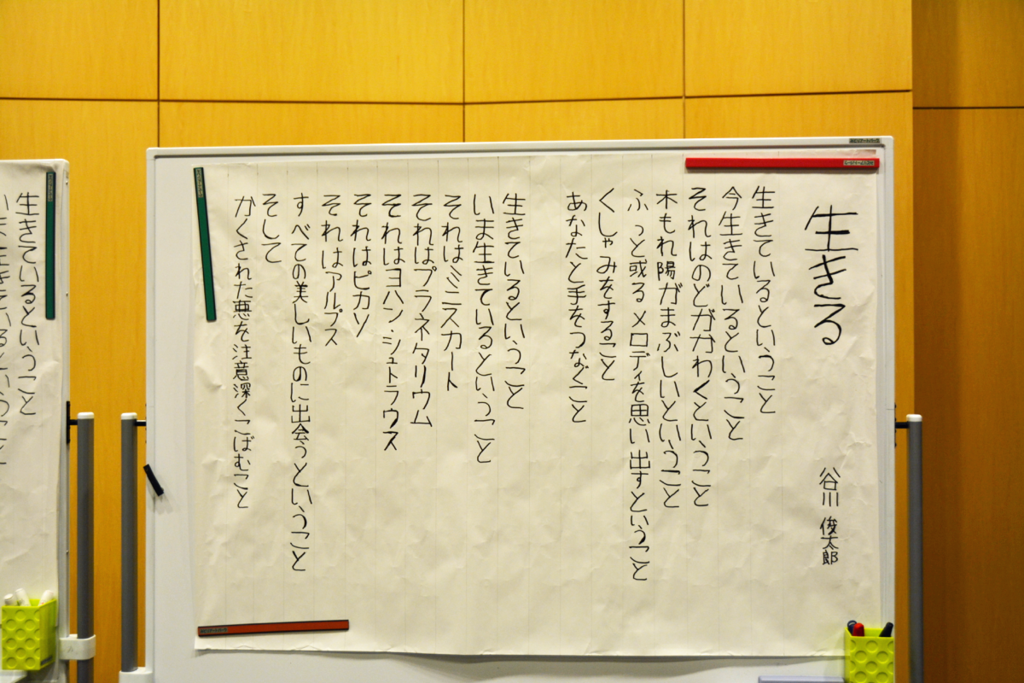 生きる
谷川 俊太郎
生きているということ
今生きているということ
それはのどがかわくということ
木もれ陽がまぶしいということ
ふっと或るメロディを思い出すということ
くしゃみをすること
あなたと手をつなぐこと
生きているということ
いま生きているということ
それはミニスカート
それはプラネタリウム
それはヨハン・シュトラウス
それはピカソ
それはアルプス
すべての美しいものに出会うということ
そして
かくされた悪を注意深くこばむこと
生きているということ
いま生きているということ